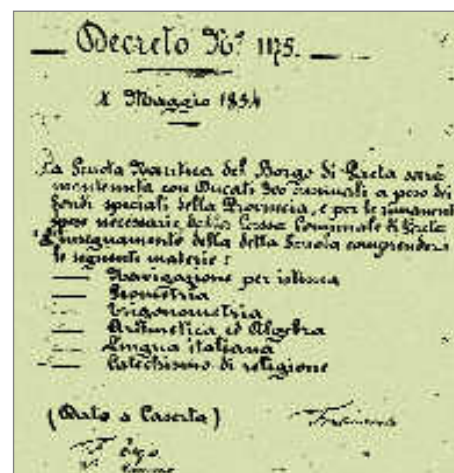 Decreto N° 1175.
X Maggio 1854
La Scuola Nautica del Borgo di Gaeta sarà
mantenuta con Ducati 300 annuali a peso dei
fondi speciali della Provincia, e per le rimanenti
spese necessarie dalla Cassa Comunale di Gaeta
L'insegnamento della detta Scuola comprenderà
le seguenti materie:
Navigazione per istima
Geometria
Trigonometria
Aritmetica ed Algebra
Lingua italiana
Catechismo di religione
(Dato a Caserta)